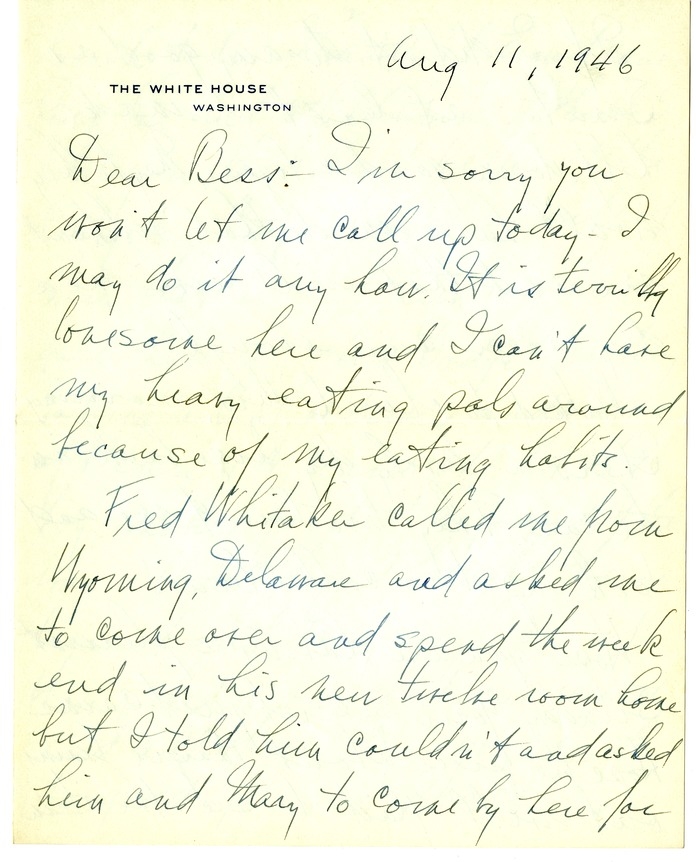 Aug 11, 1946
THE WHITE HOUSE
WASHINGTON
Dear Bess:- I'm sorry you
won't let me call up today - I
may do it any how. It is terribly
lonesome here and I can't have
my heavy eating pals around
because of my eating habits.
Fred Whitaker called me from
Wyoming, Delaware and asked me
to come over and spend the week
end in his new twelve room home
but I told him couldn't and asked
him and Mary to come by here for